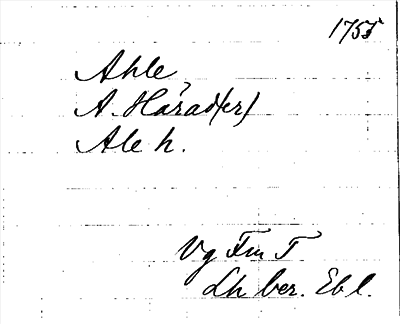 1755
Ahle,
A. Härad(er)
Ale h.
Vg Fm T
Lh ber. Ebl.